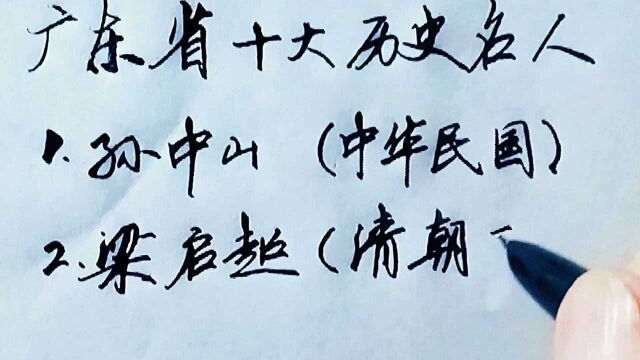 广东省十大历史名人
1.孙中山（中华民国）
2.梁启超（清朝